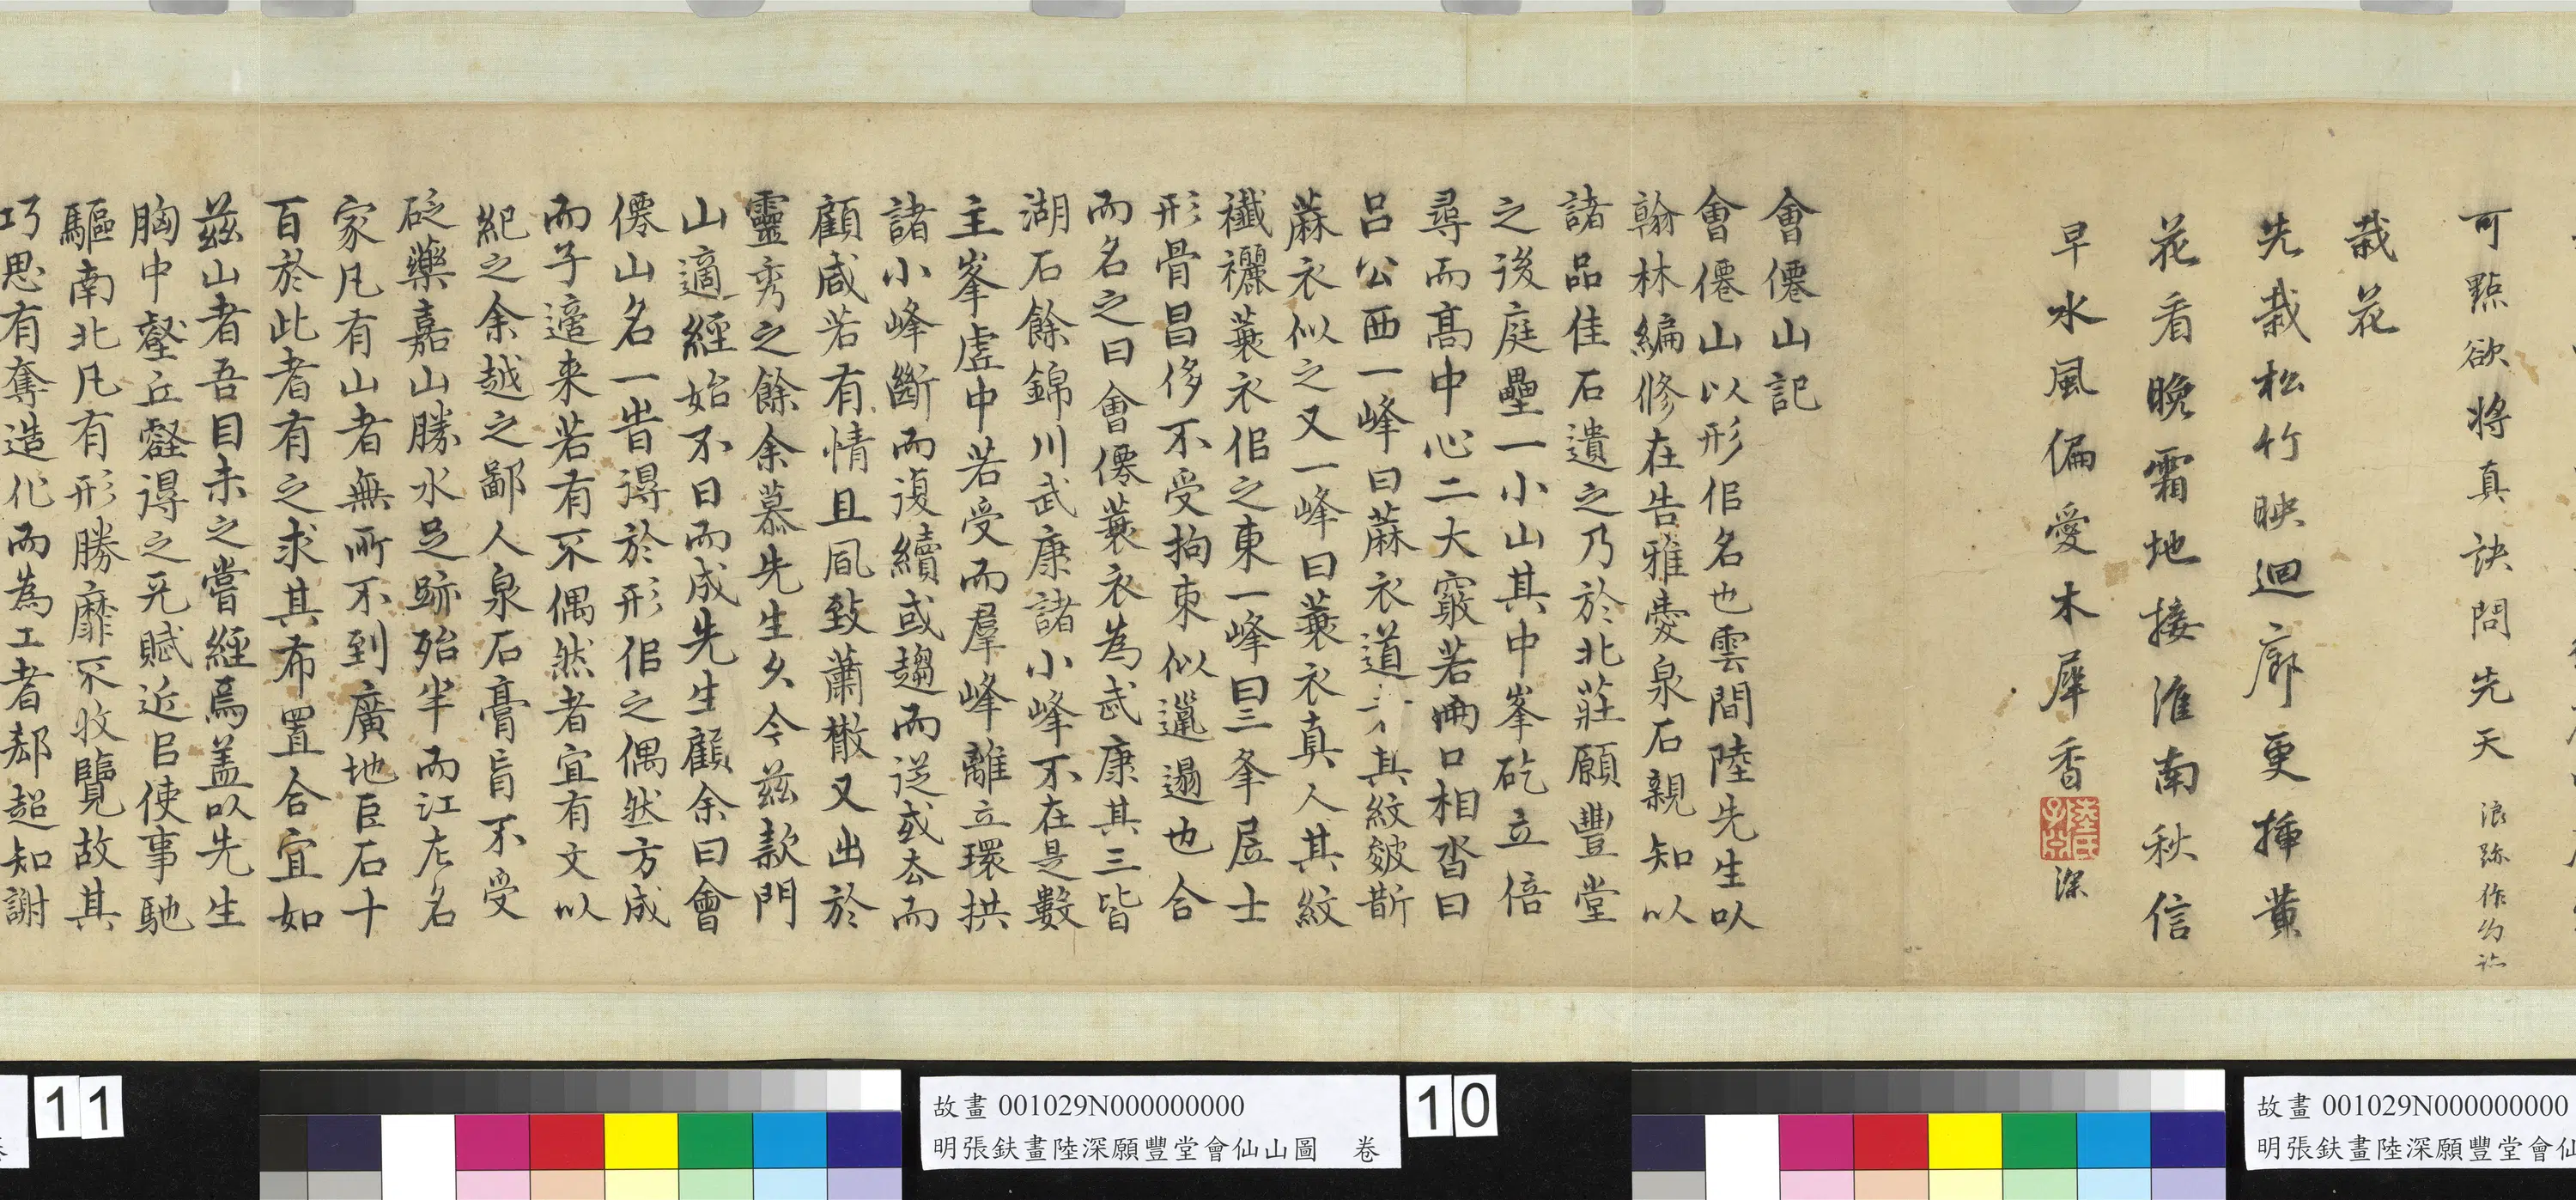 可㸃欲將真訣問先天
浪跡作幻
栽花
先栽松竹映迴廊更挿黄
花看晚霜地接淮南秋信
早水風偏愛木犀香
深
會僊山記
會僊山以形佀名也雲間陸先生以
翰林編修在告雅愛泉石親知以
諸品佳石遺之乃於北莊願豐堂
之後庭壘一小山其中峯矻立倍
尋而髙中心二大竅若兩口相沓曰
吕公西一峰曰蔴衣道其紋皴斮
蔴衣似之又一峰曰蓑衣真人其紋
襳襹蓑衣佀之東一峰曰三夆居士
形骨昌侈不受拘束似邋遢也合
而名之曰會僊蓑衣為武康其三皆
湖石餘錦川武康諸小峰不在是數
主峯虚中若受而羣峰離立環拱
諸小峰斷而復續或趨而迎或去而
顧咸若有情且風致蕭散又出於
靈秀之餘余慕先生久今兹款門
山適經始不日而成先生顧余曰會
僊山名一皆得於形佀之偶然方成
而子適来若有不偶然者宜有文以
紀之余越之鄙人泉石膏肓不受
砭藥嘉山勝水足跡殆半而江左名
家凡有山者無所不到廣地巨石十
百於此者有之求其布置合宜如
兹山者吾目未之嘗經焉盖以先生
胸中壑丘靈得之天賦近臣使事馳
驅南北凡有形勝靡不收覽故其
巧思有奪造化而為工者郄超知謝
11
故畫 001029N000000000
明張鈇畫陸深願豐堂會仙山圖 卷
10
故畫 001029N000000000
明張鈇畫陸深願豐堂會仙